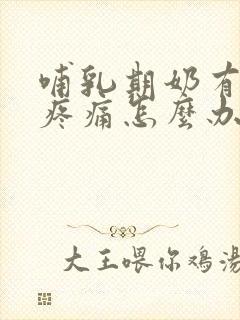 哺乳期奶有
疼痛怎麼办
大王喂你鸡汤